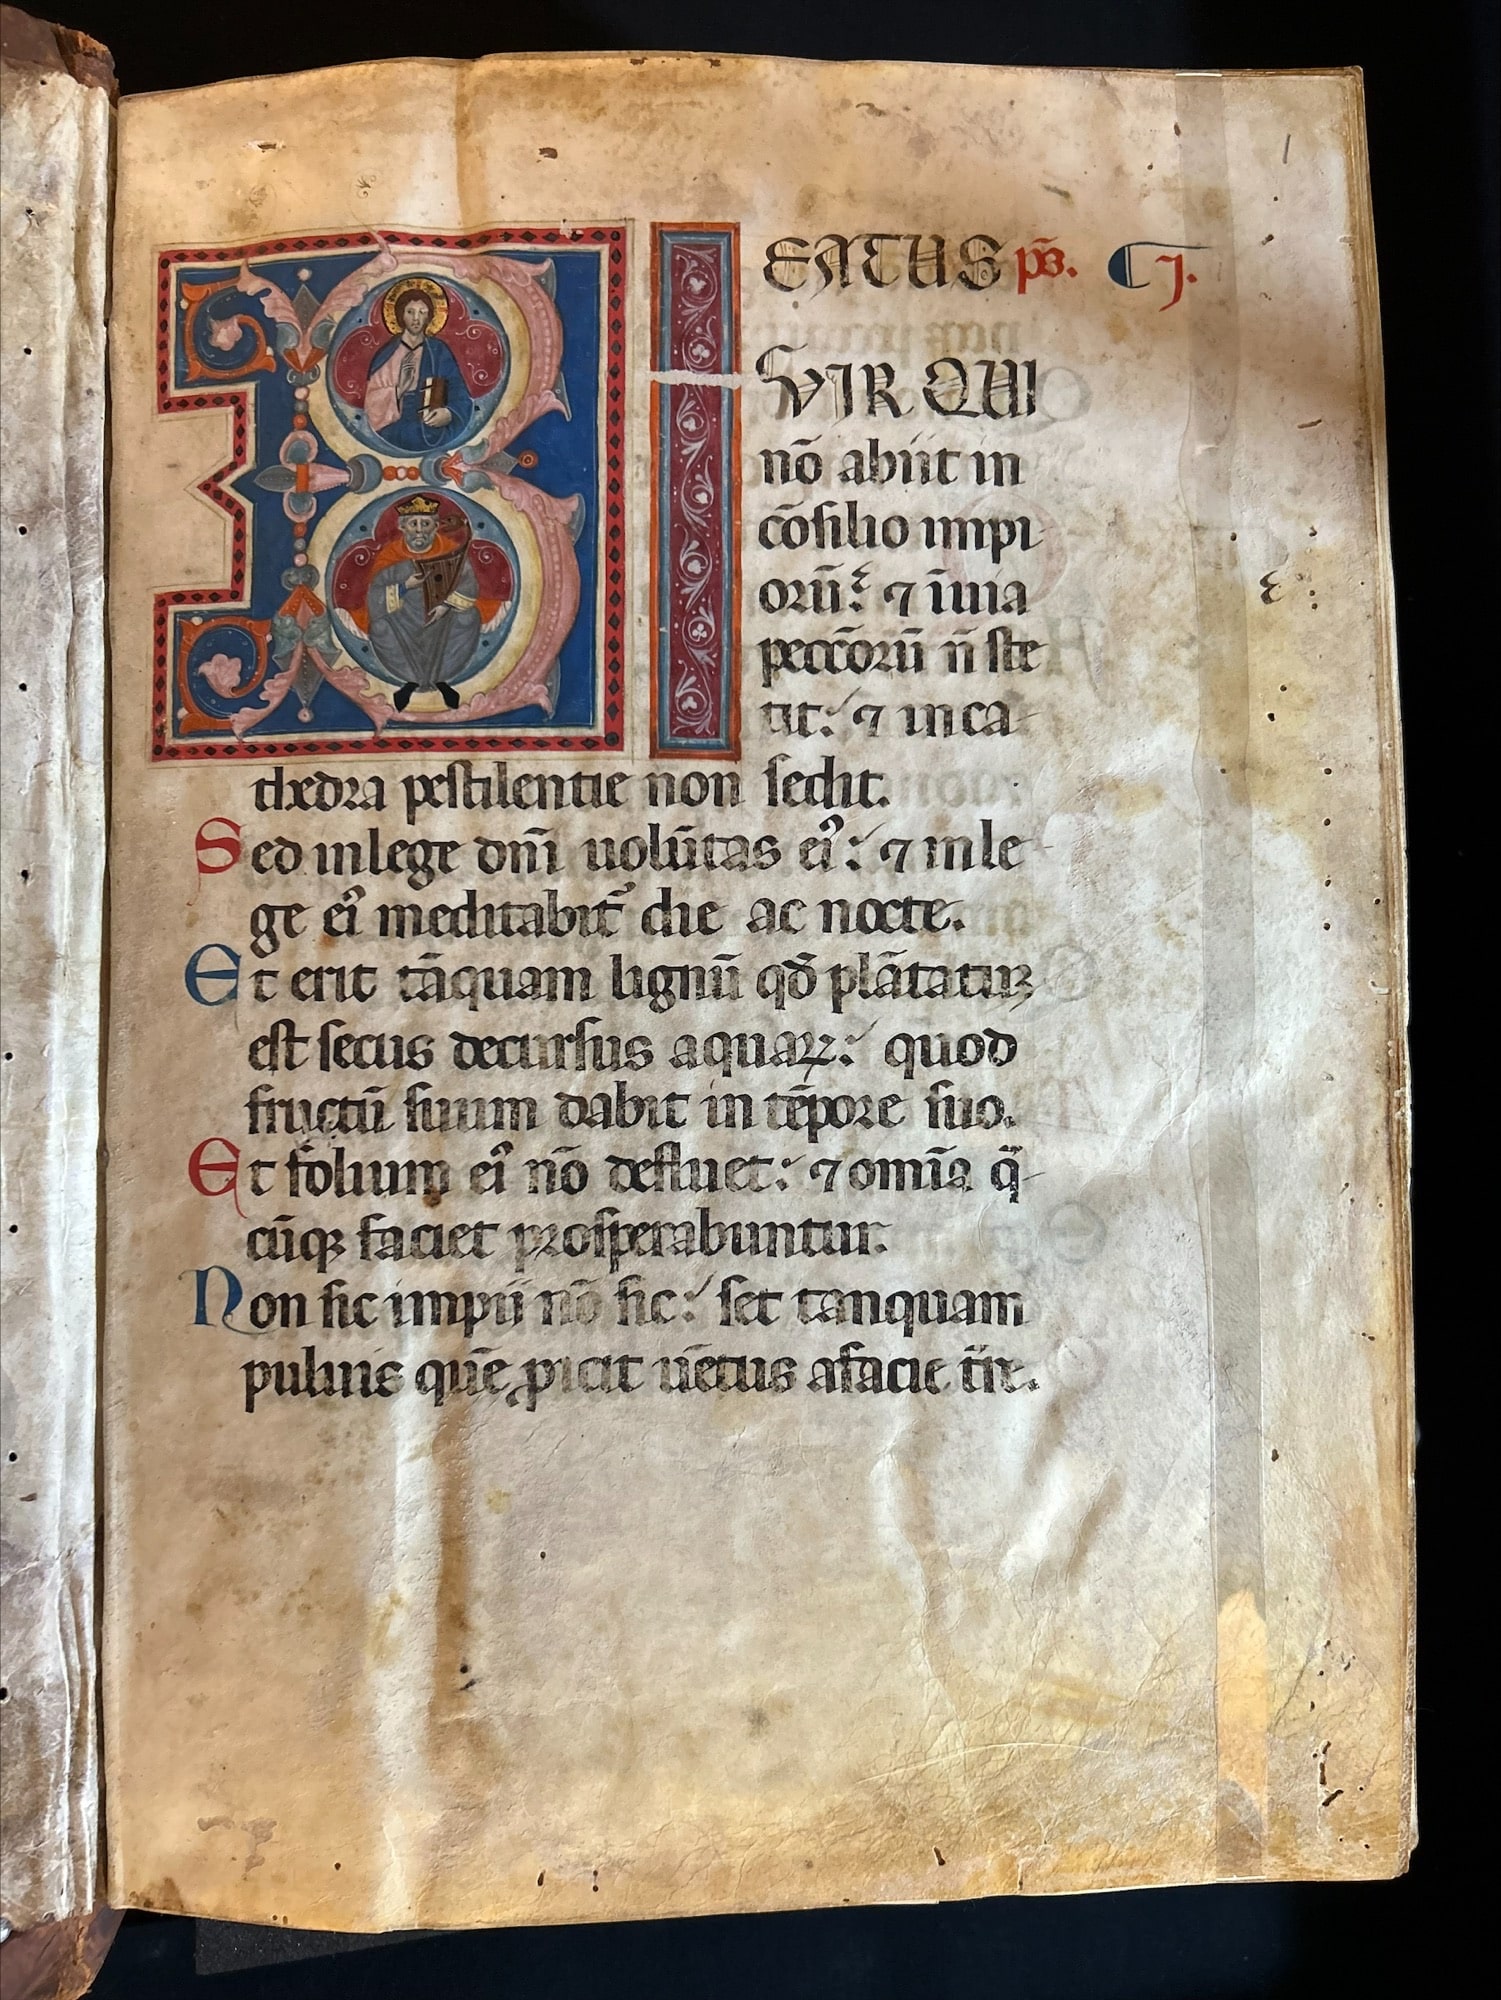 BEATUS ps̄. ℂ j.
VIR QUI
nō abiit in
cōsilio impi
orū: ⁊ ī uia
peccōrū n̄ ste
tit: ⁊ in ca
thedra pestilentie non sedit.
Sed in lege dn̄i uolūtas ei᾽: ⁊ in le
ge ei᾽ meditabit᾽ die ac nocte.
Et erit tāquam lignū qđ plātatuꝛ
est secus decursus aquaꝝ: quod
fructū suum dabit in tēpore suo.
Et folium ei᾽ nō defluet: ⁊ omīa q̄
cūqꝫ faciet prosperabuntur.
Non sic impii nō sic: set tanquam
puluis quē ꝓicit uētus a facie t̄re.